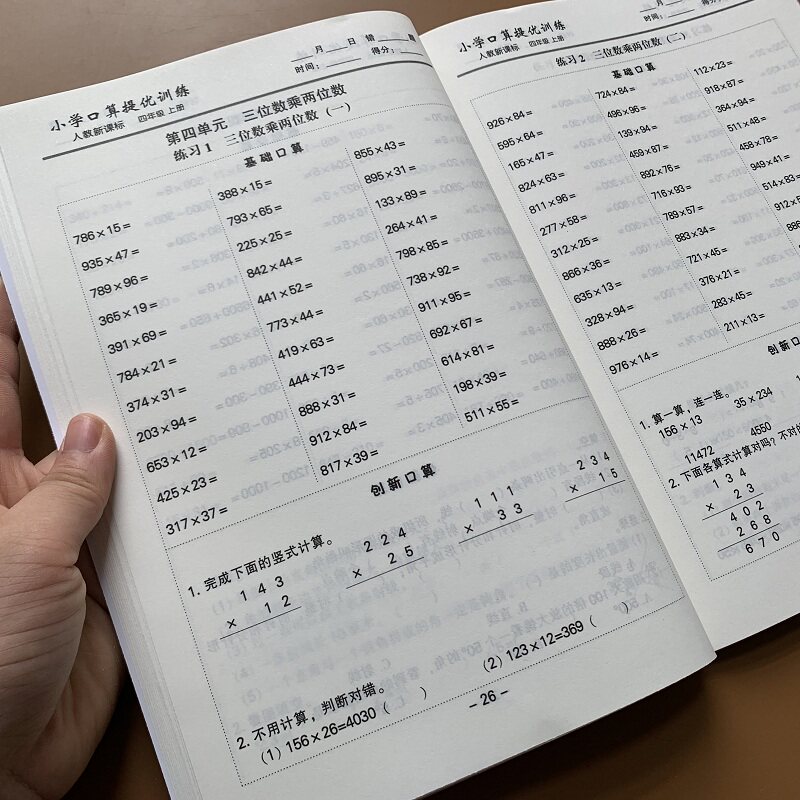 小学口算提优训练
人教新课标 四年级 上册
月 日 错 题
时间: 得分:
第四单元 三位数乘两位数
练习1 三位数乘两位数(一)
基础口算
786×15=
935×47=
789×96=
365×19=
391×69=
784×21=
374×31=
203×94=
653×12=
425×23=
317×37=
388×15=
793×65=
225×25=
842×44=
441×52=
773×44=
419×63=
444×73=
888×31=
912×84=
817×39=
855×43=
895×31=
133×89=
264×41=
798×85=
738×92=
911×95=
692×67=
614×81=
198×39=
511×55=
创新口算
1. 完成下面的竖式计算。
1 4 3
× 1 2
2 2 4
× 2 5
1 1 1
× 3 3
2 3 4
× 1 5
2. 不用计算,判断对错。
(1) 156×26=4030 ( )
(2) 123×12=369 ( )
- 26 -
小学口算提优训练
人教新课标 四年级 上册
月
时间: 得分
练习2 三位数乘两位数(二)
基础口算
926×84=
595×64=
165×47=
824×63=
811×96=
277×58=
312×25=
866×36=
635×13=
328×94=
888×26=
976×14=
724×84=
496×96=
139×94=
459×87=
892×76=
716×93=
789×57=
883×34=
721×45=
376×21=
283×45=
211×13=
112×23=
918×87=
364×94=
511×48=
458×78=
949×41=
514×83=
912×5
886
创新口
1. 算一算,连一连。
156×13
35×234
11472
4550
2. 下面各算式计算对吗?不对的
1 3 4
× 2 3
4 0 2
2 6 8
6 7 0